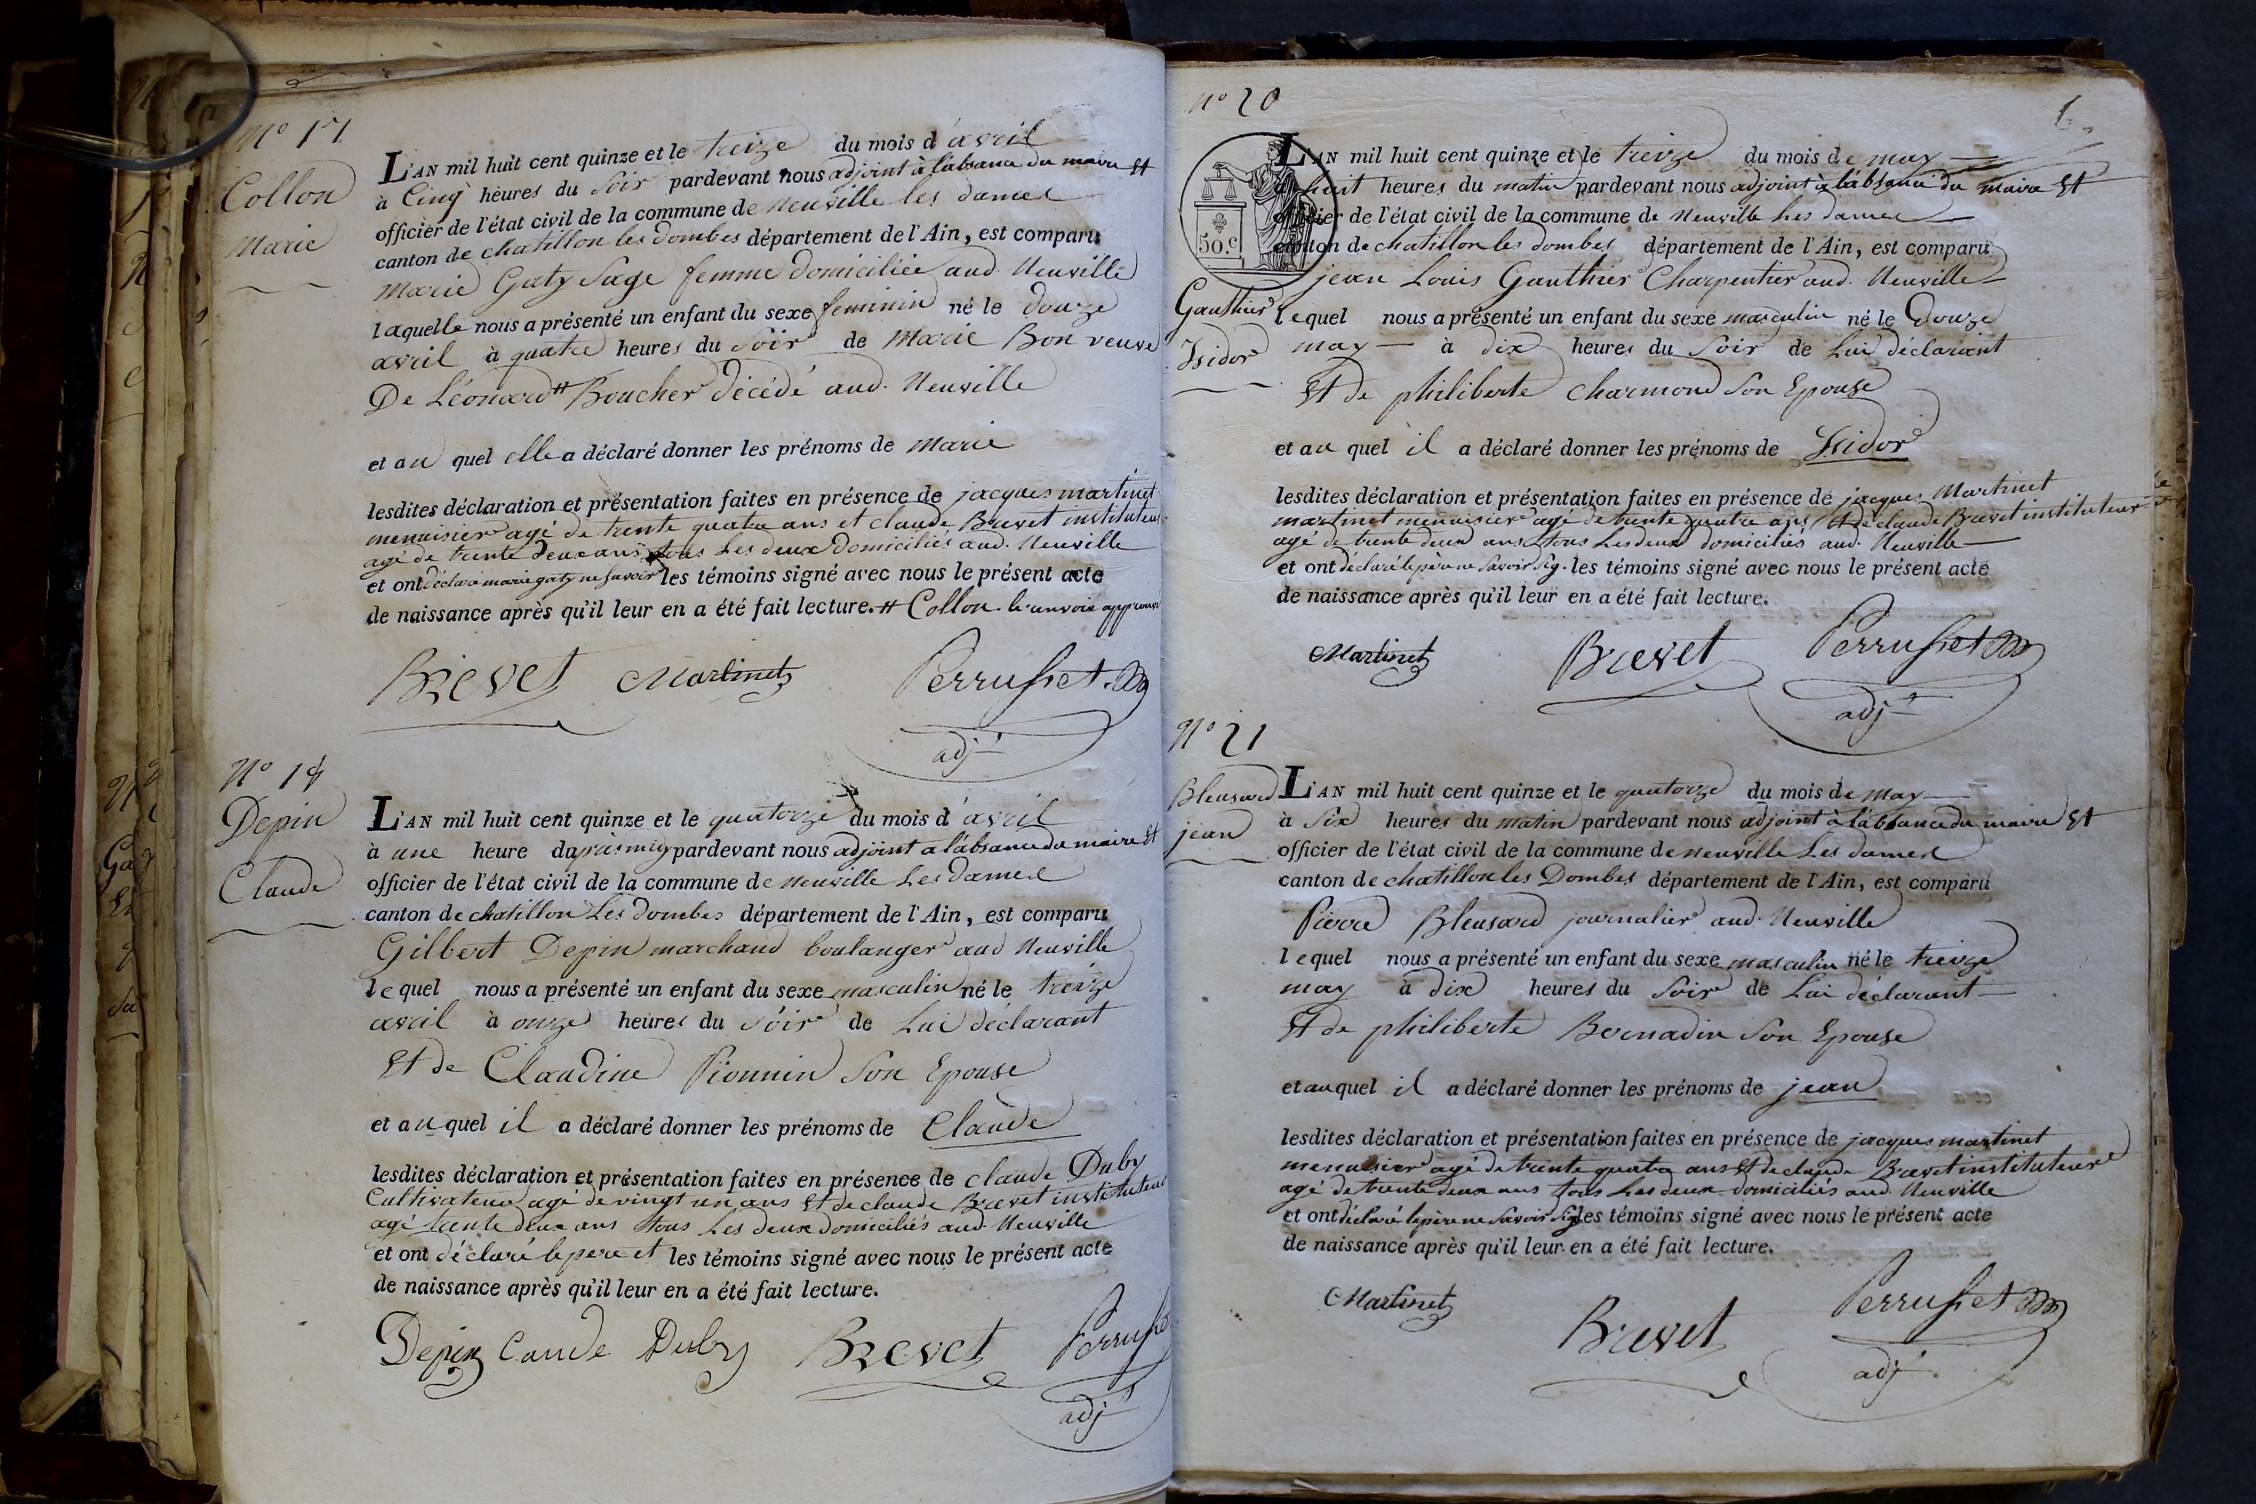 N° 17
Collon
Marie
L'AN mil huit cent quinze et le treize du mois d'avril
à Cinq heures du Soir pardevant nous adjoint à l'absance du maire Et
officier de l'état civil de la commune de Neuville les dames
canton de chatillon les dombes département de l'Ain, est comparu
Marie Gaty Sage femme domiciliée aud. Neuville
laquelle nous a présenté un enfant du sexe feminin né le douze
avril à quatre heures du Soir de Marie Bon veuve
De Léonard # Boucher décédé aud. Neuville
et au quel elle a déclaré donner les prénoms de Marie
lesdites déclaration et présentation faites en présence de jacques martinet
menuisier agé de trente quatre ans et claude Brevet instituteur
agé de trente deux ans tous Les deux Domiciliés aud. Neuville
et ont déclaré marie gaty ne savoir les témoins signé avec nous le présent acte
de naissance après qu'il leur en a été fait lecture. # Collon le renvoie approuvé
Brevet Martinet Perrusset
adjt
N° 18
Depin
Claude
L'AN mil huit cent quinze et le quatorze du mois d'avril
à une heure daprès miy pardevant nous adjoint a l'absance du maire Et
officier de l'état civil de la commune de Neuville Les Dames
canton de chatillon Les dombes département de l'Ain, est comparu
Gilbert Depin marchand boulanger aud Neuville
lequel nous a présenté un enfant du sexe masculin né le treize
avril à onze heures du Soir de Lui déclarant
Et de Claudine Pionnin Son Epouse
et au quel il a déclaré donner les prénoms de Claude
lesdites déclaration et présentation faites en présence de claude Duby
Cultivateur agé de vingt un ans Et de claude Brevet instituteur
agé trente deux ans tous Les deux domiciliés aud. Neuville
et ont déclaré le pere et les témoins signé avec nous le présent acte
de naissance après qu'il leur en a été fait lecture.
Depin Caude Duby Brevet Perrusset
adjt
N° 20
6
50.c
Gauthier
Isidor
L'AN mil huit cent quinze et le treize du mois de may
à huit heures du matin pardevant nous adjoint à l'absance du maire Et
officier de l'état civil de la commune de Neuville Les dames
canton de chatillon les dombes département de l'Ain, est comparu
jean Louis Gauthier Charpentier aud. Neuville
lequel nous a présenté un enfant du sexe masculin né le Douze
may à dix heures du Soir de Lui déclarant
Et de philiberte Charmond Son Epouse
et au quel il a déclaré donner les prénoms de Isidor
lesdites déclaration et présentation faites en présence de jacques Martinet
martinet menuisier agé de trente quatre ans Et de claude Brevet instituteur
agé de trente deux ans tous Les deux domiciliés aud. Neuville
et ont déclaré le père ne Savoir Sig. les témoins signé avec nous le présent acte
de naissance après qu'il leur en a été fait lecture.
Martinet Brevet Perrusset
adjt
N° 21
Bleusard
jean
L'AN mil huit cent quinze et le quatorze du mois de may
à Six heures du matin pardevant nous adjoint à l'absance du maire Et
officier de l'état civil de la commune de neuville Les dames
canton de chatillon les Dombes département de l'Ain, est comparu
Pierre Bleusard journalier aud. Neuville
lequel nous a présenté un enfant du sexe masculin né le treize
may à dix heures du Soir de Lui déclarant
Et de philiberte Bernadin Son Epouse
et au quel il a déclaré donner les prénoms de jean
lesdites déclaration et présentation faites en présence de jacques martinet
menuisier agé de trente quatre ans Et de claude Brevet instituteur
agé de trente deux ans tous Les deux domiciliés aud. Neuville
et ont déclaré le père ne Savoir Sig les témoins signé avec nous le présent acte
de naissance après qu'il leur en a été fait lecture.
Martinet Brevet Perrusset
adjt